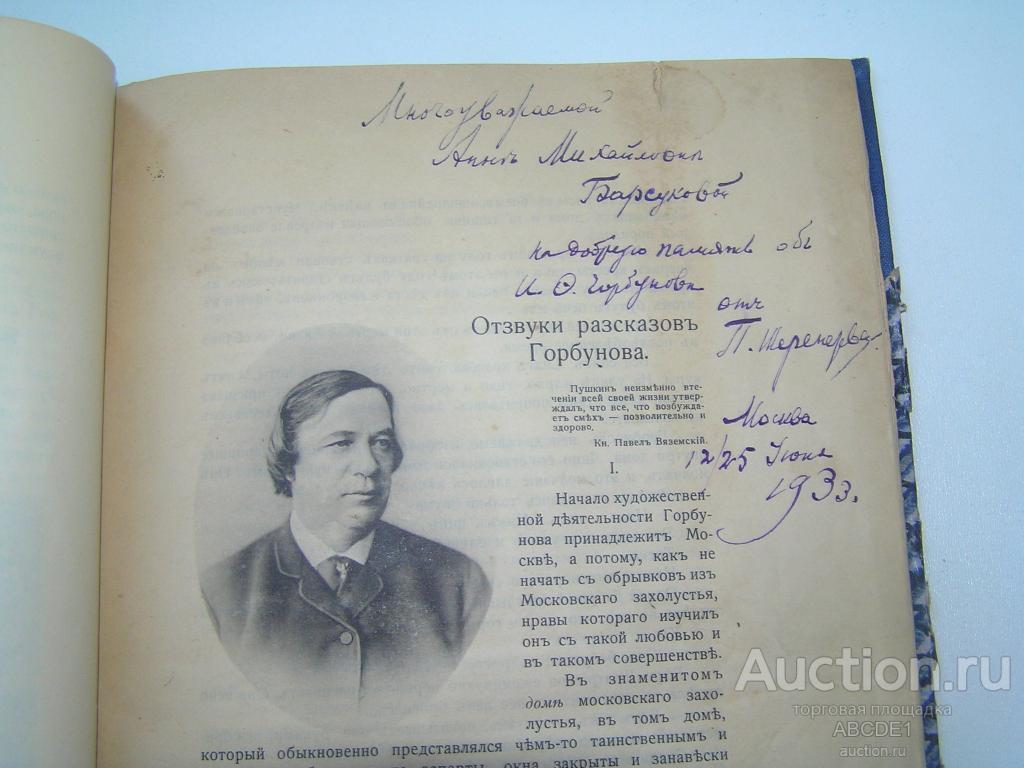 Многоуважаемой
Аннѣ Михайловнѣ
Барсуковой
на добрую память объ
И. Ѳ. Горбуновѣ
отъ
П.
Отзвуки разсказовъ
Горбунова.
Пушкинъ неизмѣнно втече-
ніи всей своей жизни утвер-
ждалъ, что все, что возбужда-
етъ смѣхъ — позволительно и
здорово.
Кн. Павелъ Вяземскій.
Москва
12/25 Іюня
1933.
I.
Начало художествен-
ной дѣятельности Горбу-
нова принадлежитъ Мо-
сквѣ, а потому, какъ не
начать съ обрывковъ изъ
Московскаго захолустья,
нравы котораго изучилъ
онъ съ такой любовью и
въ такомъ совершенствѣ.
Въ знаменитомъ
домѣ московскаго захо-
лустья, въ томъ домѣ,
который обыкновенно представлялся чѣмъ-то таинственнымъ и
заперты, окна закрыты и занавѣски
Auction.ru
торговая площадка
ABCDE1
auction.ru